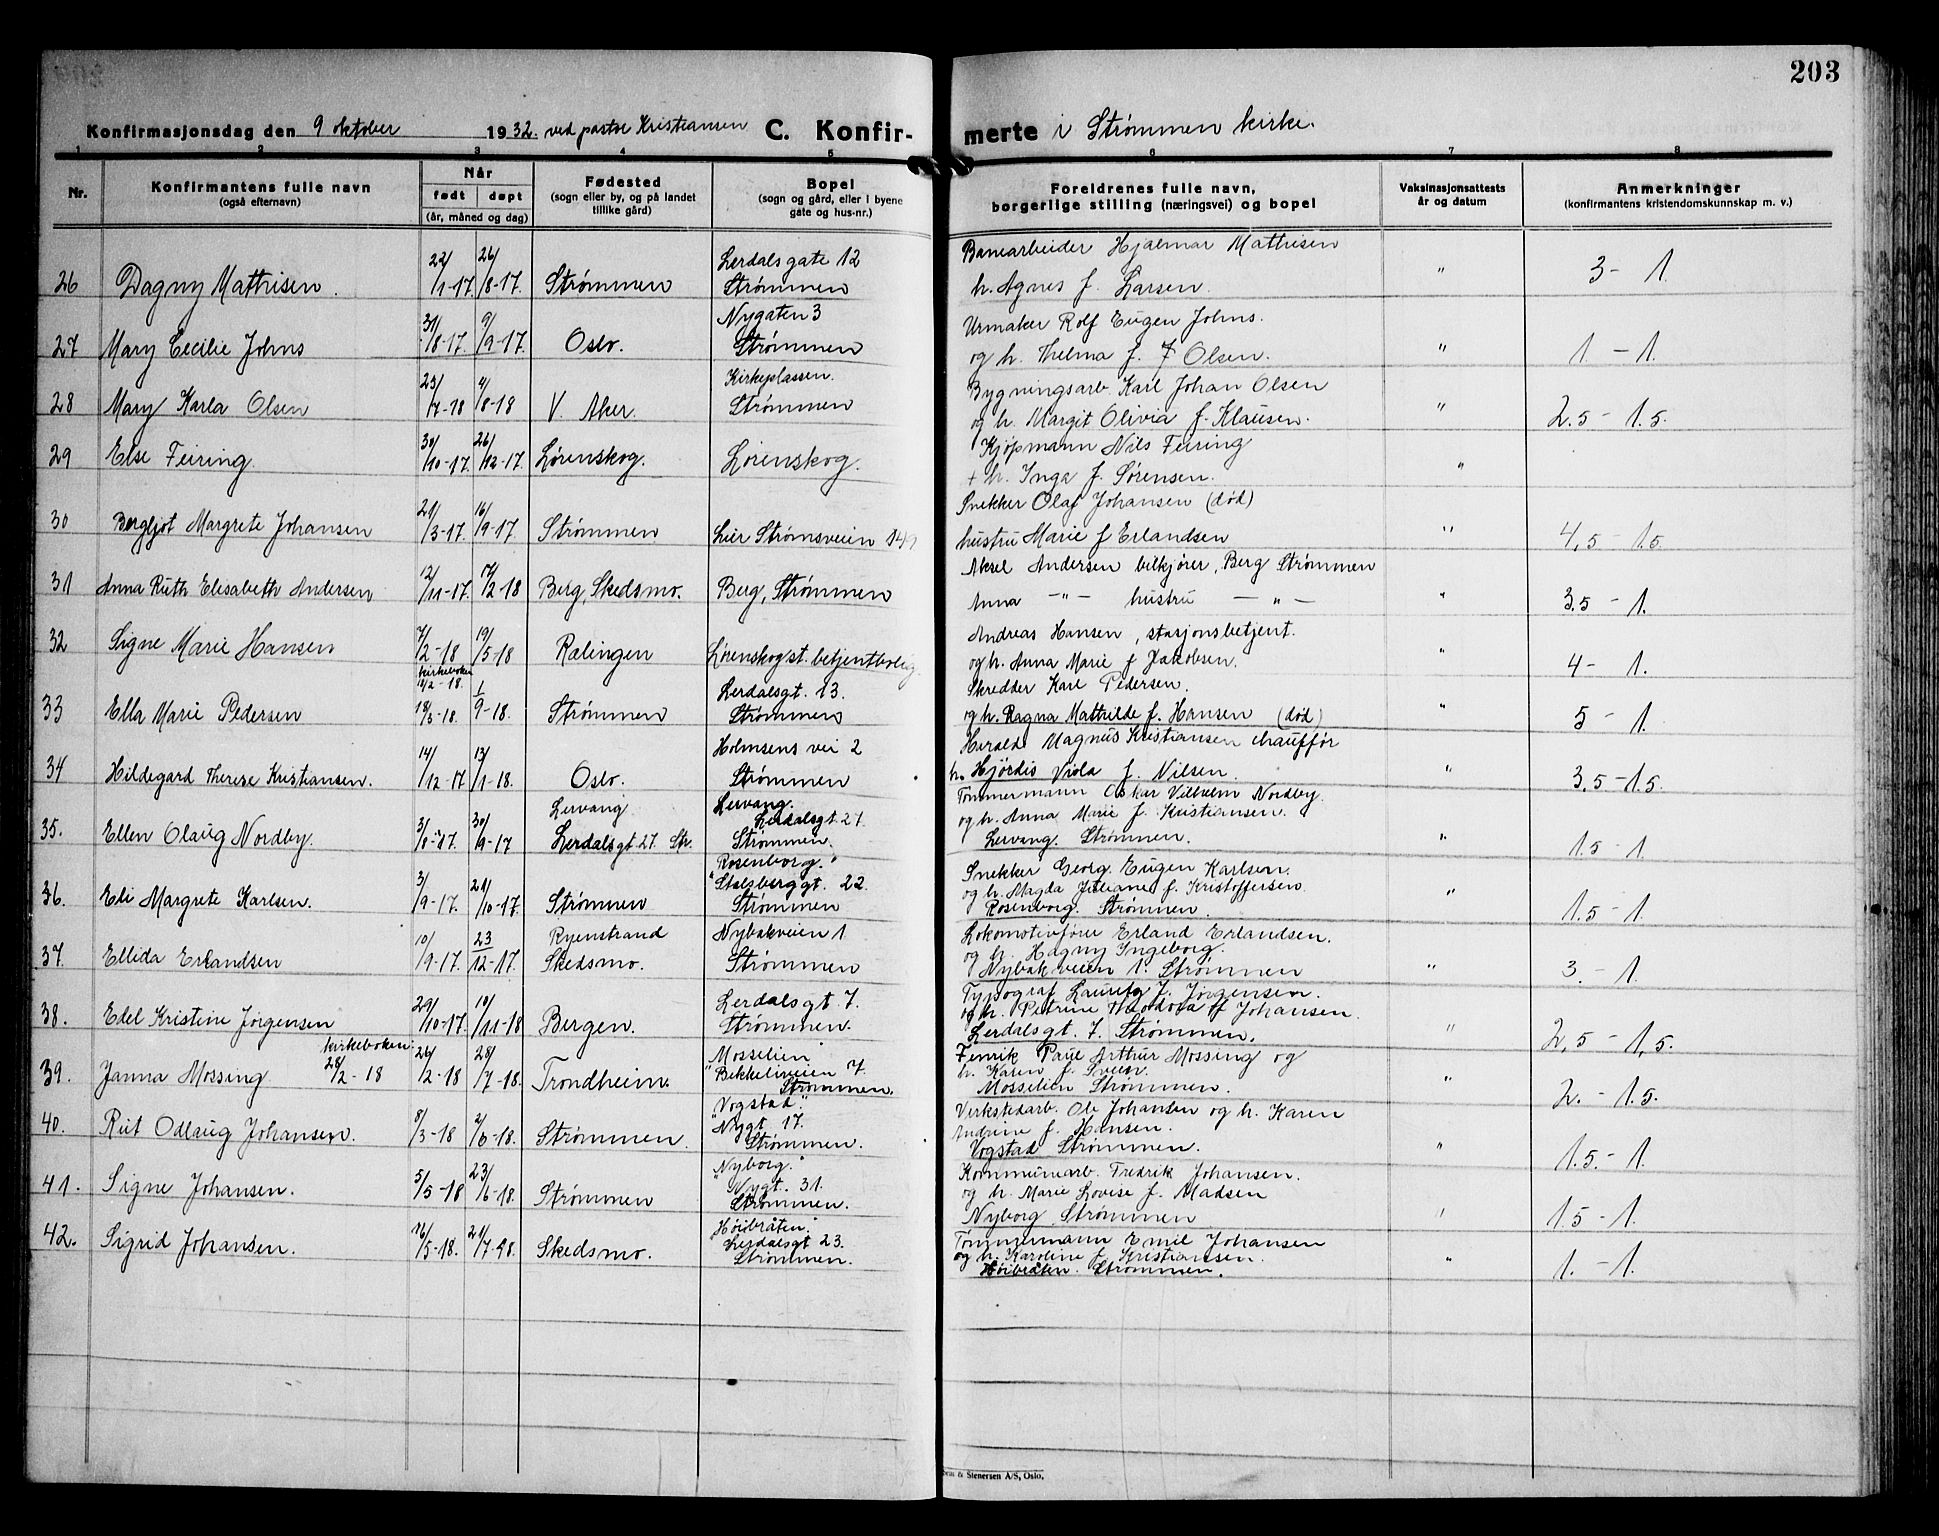 203
Konfirmasjonsdag den 9 oktober 1932. ved pastor Kristiansen C. Konfir-
merte i Strømmen kirke.
1 2 3 4 5 6 7 8
Nr.
Konfirmantens fulle navn
(også efternavn)
Når
født døpt
(år, måned og dag)
Fødested
(sogn eller by, og på landet
tillike gård)
Bopel
(sogn og gård, eller i byene
gate og hus-nr.)
Foreldrenes fulle navn,
borgerlige stilling (næringsvei) og bopel
Vaksinasjonsattests
år og datum
Anmerkninger
(konfirmantens kristendomskunnskap m. v.)
26 Dagny Mathisen. 22/1-17. 26/8-17. Strømmen
Lerdalsgate 12
Strømmen
Banearbeider Hjalmar Mathisen
h. Agnes f. Larsen.
" 3 - 1.
27 Mary Cecilie Johns 31/8-17. 9/9-17. Oslo.
Nygaten 3
Strømmen
Urmaker Rolf Eugen Johns.
og h. Thelma f. Olsen.
" 1 - 1.
28 Mary Karla Olsen 23/7-18 4/8-18 V. Aker.
Kirkeplassen.
Strømmen
Bygningsarb. Karl Johan Olsen
og h. Margit Olivia f. Klausen.
" 2.5 - 1.5.
29 Else Feiring. 30/10-17. 26/12-17. Lørenskog. Lørenskog.
Kjøpmann Nils Feiring
+ h. Inga f. Sørensen.
"
30 Bergljot Margrete Johansen 21/3-17. 16/9-17. Strømmen Lier Strømsveien 149
Snekker Olaf Johansen (død)
hustru Marie f Erlandsen
" 4,5 - 1.5.
31 Anna Ruth Elisabeth Andersen 12/11-17. 17/2-18 Berg, Skedsmo. Berg, Strømmen
Aksel Andersen bilkjører, Berg Strømmen
Anna - " - hustru - " -
" 3.5 - 1.
32 Signe Marie Hansen 7/2-18 19/5-18 Rælingen Lørenskog st. betjentbolig
Andreas Hansen, stasjonsbetjent.
og h. Anna Marie f Jakobsen.
" 4 - 1.
kirkeboken
18/2-18.
33 Ella Marie Pedersen 18/3-18. 1/9-18. Strømmen
Lerdalsgt. 13.
Strømmen
Skredder Karl Pedersen.
og h. Ragna Mathilde f. Hansen (død)
" 5 - 1.
34 Hildegard Therese Kristiansen. 14/12-17 13/1-18. Oslo.
Holmsens vei 2
Strømmen
Harald Magnus Kristiansen chauffør
h. Hjørdis Viola f. Nilsen.
" 3.5 - 1.5
35. Ellen Olaug Nordby. 3/8-17. 30/9-17
Lervang
Lerdalsgt 27. Str.
Lervang.
Lerdalsgt. 27.
Strømmen.
Tømmermann Oskar Vilhelm Nordby.
og h. Anna Marie f. Kristiansen.
Lervang. Strømmen.
" 1.5 - 1.
36. Eli Margrete Karlsen. 3/9-17. 21/10-17. Strømmen
"Rosenborg."
Stalsberggt. 22.
Strømmen
Snekker Georg Eugen Karlsen.
og h. Magda Juliane f. Kristoffersen
Rosenborg. Strømmen.
" 1.5 - 1.
37. Ellida Erlandsen 10/9-17. 23/12-17.
Ryenstrand
Skedsmo.
Nybakveien 1
Strømmen
Lokomotivfører Erland Erlandsen.
og h. Hagny Ingeborg.
Nybakveien 1. Strømmen
" 3. - 1.
38. Edel Kristine Jørgensen 29/10-17. 10/11-18 Bergen.
Lerdalsgt 7.
Strømmen.
Typograf Lauritz J. Jørgensen.
og h. Petrine Theodora f Johansen.
Lerdalsgt. 7. Strømmen.
" 2,5 - 1,5.
39. Janna Mossing. kirkeboken: 28/2-18 26/2-18 28/7-18. Trondheim.
"Mosselien"
Bekkeliveien 7.
Strømmen.
Fenrik Paul Arthur Mossing og
h. Karen f. Sveen.
Mosselien Strømmen.
" 2. - 1.5.
40. Rut Odlaug Johansen. 8/3-18 2/6-18. Strømmen.
"Vogstad".
Nygt. 17.
Strømmen.
Verkstedarb. Ole Johansen og h. Karen
Andrine f. Hansen.
Vogstad Strømmen.
" 1.5. - 1.
41. Signe Johansen. 5/5-18 23/6-18. Strømmen
"Nyborg."
Nygt. 31.
Strømmen.
Kommunearb. Fredrik Johansen.
og h. Marie Lovise f. Madsen
Nyborg Strømmen
" 1.5 - 1.
42. Sigrid Johansen. 16/5-18. 21/7-98. Skedsmo.
"Høibråten."
Lerdalsgt 23.
Strømmen.
Tømmermann Emil Johansen
og h. Karoline f. Kristiansen.
Høibråten. Strømmen.
" 1. - 1.
& Stenersen A/S, Oslo.